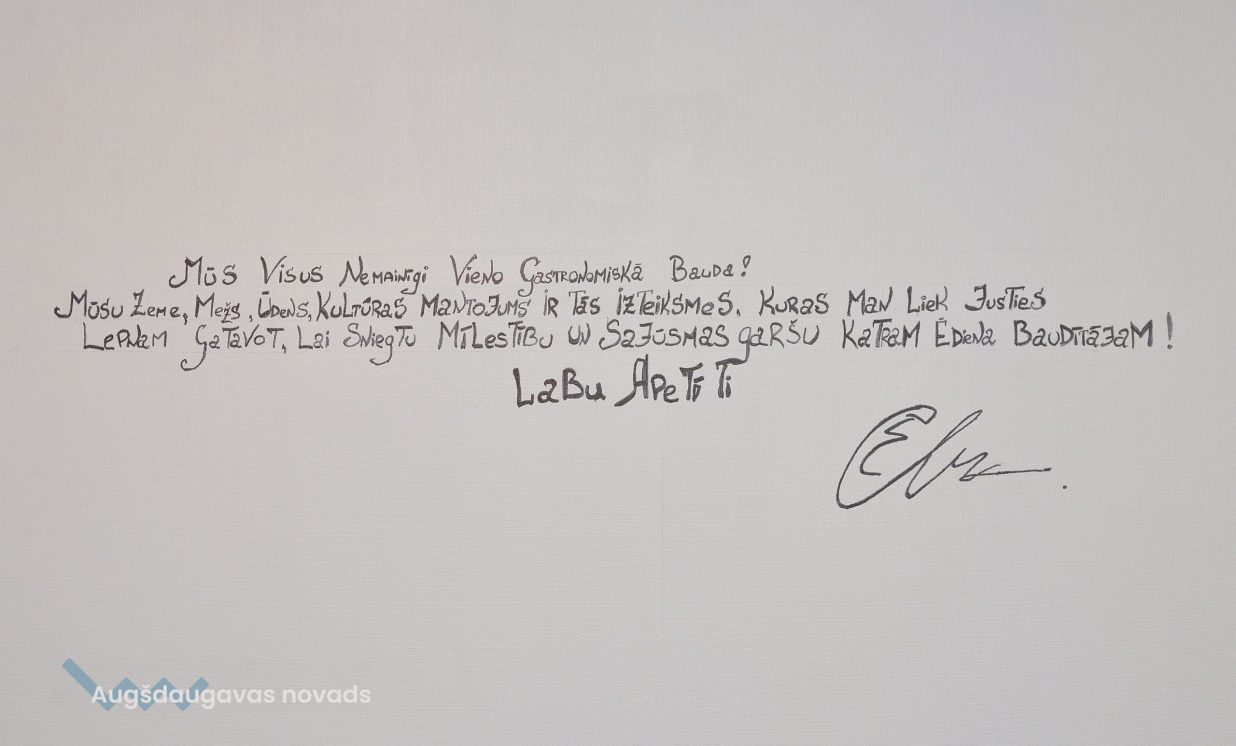 Mūs Visus Nemainīgi Vieno Gastronomiskā Bauda!
Mūsu Zeme, Mežs, Ūdens, Kultūras Mantojums ir Tās izteiksmes, Kuras Man Liek Justies
Lepnam Gatavot, Lai Sniegtu Mīlestību un Sajūsmas garšu Katram Ēdiena Baudītājam!
Labu Apetīti
Augšdaugavas novads